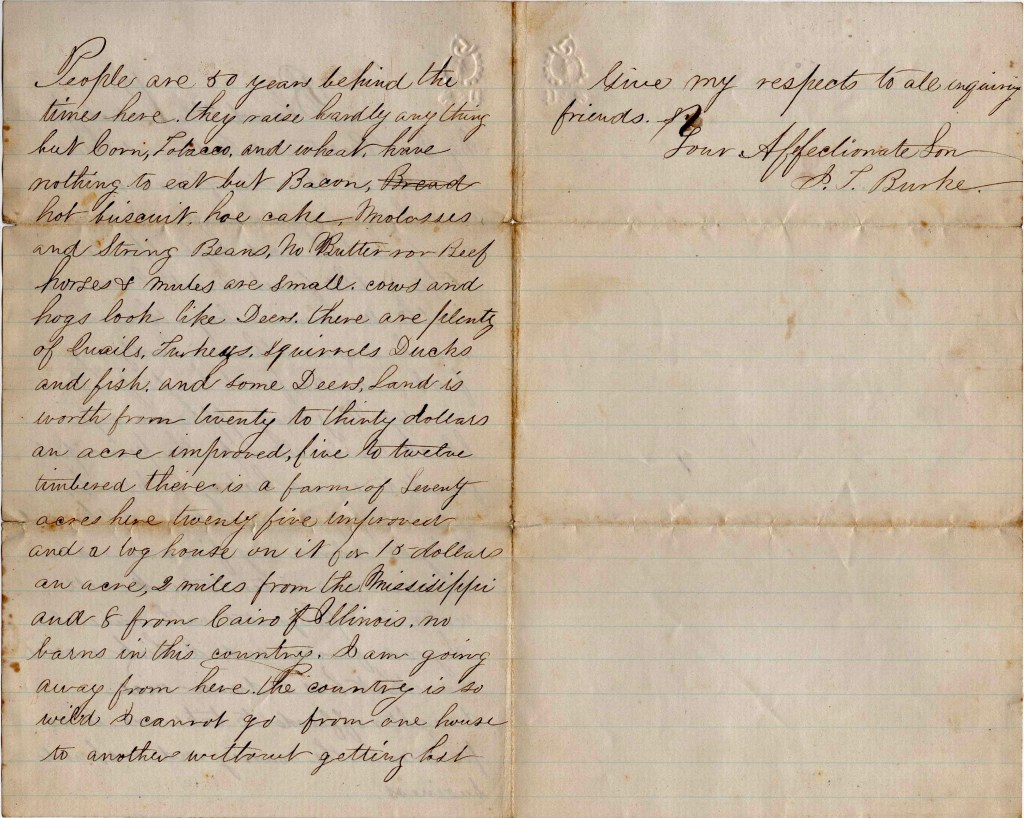 People are 50 years behind the
times here. they raise hardly any thing
but Corn, Tobacco, and wheat, have
nothing to eat but Bacon, Bread
hot biscuit. hoe cake. Molasses
and String Beans, no Butter nor Beef
horses & mules are small. cows and
hogs look like Deers. there are plenty
of Quails, Turkeys. Squirrels Ducks
and fish. and some Deers, Land is
worth from twenty to thirty dollars
an acre improved, five to twelve
timbered there is a farm of Seventy
acres here twenty five improved
and a log house on it for 15 dollars
an acre, 2 miles from the Missisippi
and 8 from Cairo Illinois. no
barns in this country. I am going
away from here. The country is so
wild I cannot go from one house
to another without getting lost
Give my respects to all inquiring
friends.
Your Affectionate Son
Burke.